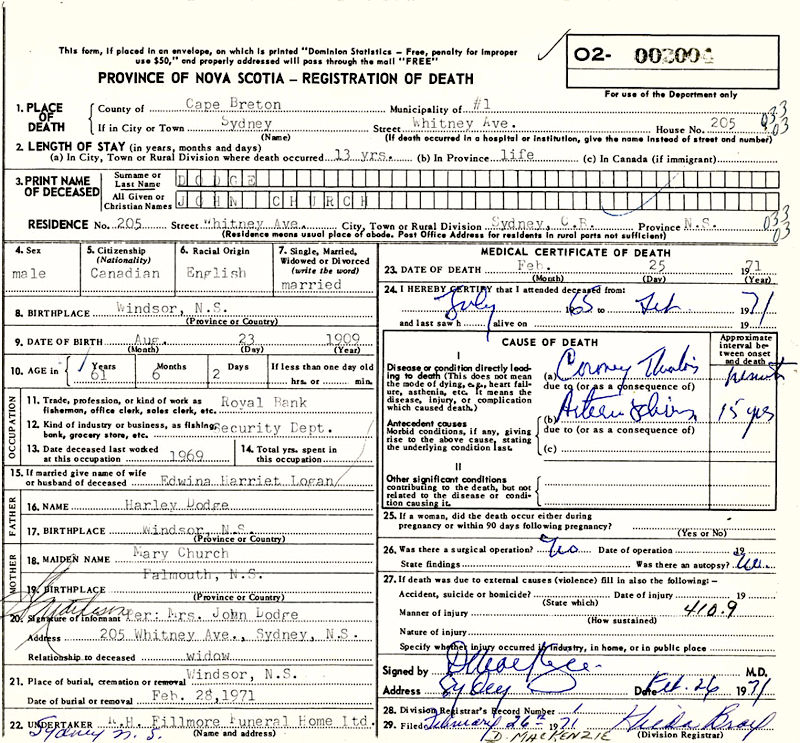 This form, if placed in an envelope, on which is printed "Dominion Statistics - Free, penalty for improper
use $50," and properly addressed will pass through the mail "FREE"
PROVINCE OF NOVA SCOTIA - REGISTRATION OF DEATH
02- 003004
For use of the Department only
1. PLACE OF DEATH
County of Cape Breton Municipality of #1
If in City or Town Sydney Street Whitney Ave. House No. 205
033
03
(Name) (If death occurred in a hospital or institution, give the name instead of street and number)
2. LENGTH OF STAY (in years, months and days)
(a) In City, Town or Rural Division where death occurred 13 yrs. (b) In Province life (c) In Canada (if immigrant)
3. PRINT NAME OF DECEASED
Surname or Last Name DODGE
All Given or Christian Names JOHN CHURCH
RESIDENCE No. 205 Street Whitney Ave. City, Town or Rural Division Sydney, C.B. Province N.S.
033
03
(Residence means usual place of abode. Post Office Address for residents in rural parts not sufficient)
4. Sex
male
5. Citizenship
(Nationality)
Canadian
6. Racial Origin
English
7. Single, Married,
Widowed or Divorced
(write the word)
married
8. BIRTHPLACE Windsor, N.S.
(Province or Country)
9. DATE OF BIRTH Aug. 23 1909
(Month) (Day) (Year)
10. AGE in
Years Months Days If less than one day old
61 6 2 hrs. or min.
OCCUPATION
11. Trade, profession, or kind of work as
fisherman, office clerk, sales clerk, etc. Royal Bank
12. Kind of industry or business, as fishing,
bank, grocery store, etc. Security Dept.
13. Date deceased last worked
at this occupation 1969
14. Total yrs. spent in
this occupation
15. If married give name of wife
or husband of deceased Edwina Harriet Logan
FATHER
16. NAME Harley Dodge
17. BIRTHPLACE Windsor, N.S.
(Province or Country)
MOTHER
18. MAIDEN NAME Mary Church
19. BIRTHPLACE Falmouth, N.S.
(Province or Country)
20. Signature of informant Per: Mrs. John Dodge
Address 205 Whitney Ave., Sydney, N.S.
Relationship to deceased widow
21. Place of burial, cremation or removal Windsor, N.S.
Date of burial or removal Feb. 28, 1971
22. UNDERTAKER Fillmore Funeral Home Ltd.
Sydney N.S.
MEDICAL CERTIFICATE OF DEATH
23. DATE OF DEATH Feb. 25 1971
(Month) (Day) (Year)
24. I HEREBY CERTIFY that I attended deceased from:
July 1965 to 1971
and last saw h alive on 19
CAUSE OF DEATH
Approximate
interval be-
tween onset
and death
I
Disease or condition directly lead-
ing to death (This does not mean
the mode of dying, e.g., heart fail-
ure, asthenia, etc. It means the
disease, injury, or complication
which caused death.)
(a)
due to (or as a consequence of)
Antecedent causes
Morbid conditions, if any, giving
rise to the above cause, stating
the underlying condition last.
(b) 15 yrs
due to (or as a consequence of)
(c)
II
Other significant conditions
contributing to the death, but not
related to the disease or condi-
tion causing it.
25. If a woman, did the death occur either during
pregnancy or within 90 days following pregnancy?
(Yes or No)
26. Was there a surgical operation? No Date of operation 19
State findings Was there an autopsy? No
27. If death was due to external causes (violence) fill in also the following:-
Accident, suicide or homicide? Date of injury 19
(State which)
Manner of injury 410.9
(How sustained)
Nature of injury
Specify whether injury occurred in industry, in home, or in public place
Signed by M.D.
Address Sydney Date Feb. 26 1971
28. Division Registrar's Record Number 1
29. Filed February 26th 1971 Hilda
D. MACKENZIE (Division Registrar)